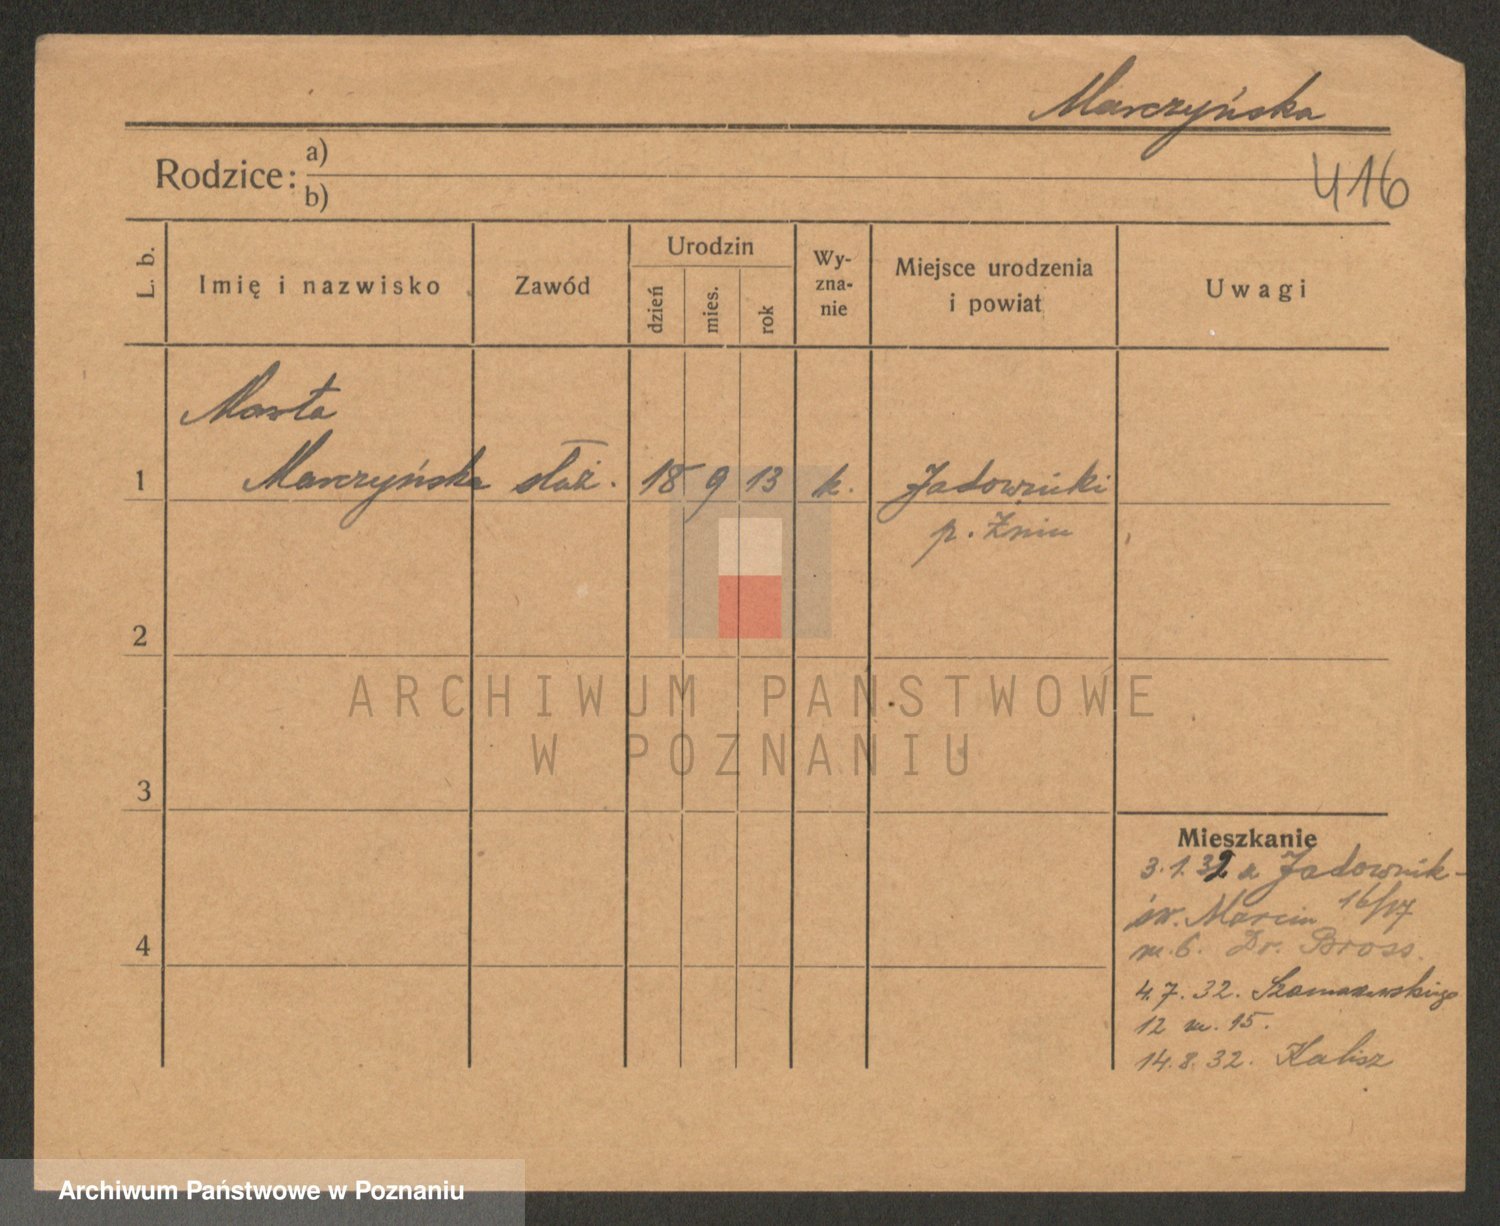 Marczyńska
416
Rodzice: a)
b)
L. b.
Imię i nazwisko
Zawód
Urodzin
dzień
mies.
rok
Wy-
zna-
nie
Miejsce urodzenia
i powiat
Uwagi
Marta
1 Marczyńska służ. 18 9 13 k. Jadowniki
p. Żnin
2
3
4
Mieszkanie
3.1.32 z Jadownik-
św. Marcin 16/17
m. 6. Dr. Bross.
4.7.32. Szamarzewskiego
12 m. 15.
14.8.32. Kalisz
ARCHIWUM PAŃSTWOWE
W POZNANIU
Archiwum Państwowe w Poznaniu